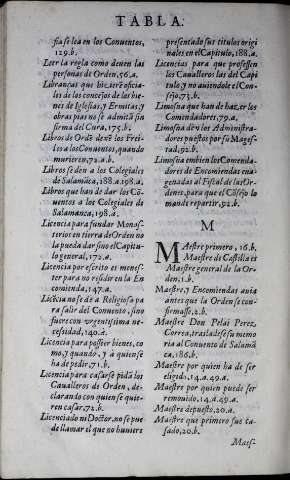 TABLA.
sia se lea en los Conuentos,
129.b.
Leer la regla como deuen las
personas de Orden, 56.a.
Libranças que hizierẽ oficia-
les o los concejos de las bie-
nes de Iglesias, y Ermitas, y
obras pias no se admitã sin
firma del Cura, 175.b.
Libros de Ordẽ dexẽ los Frei-
les a los Conuentos, quando
murierẽ, 72.a.b.
Libros se dẽn a los Colegiales
de Salamãca, 188.a.198.a.
Libros que han de dar los Cõ-
uentos a los Colegiales de
Salamanca, 198.a.
Licencia para fundar Monas-
terios en tierra de Orden no
la pueda dar sino el Capitu-
lo general, 172.a.
Licencia por escrito es menes-
ter para no residir en la En
comienda, 147.a.
Licẽcia no se dè a Religiosa pa
ra salir del Conuento, sino
fuere con vrgentissima ne-
cessidad, 140.a.
Licencia para posseer bienes, co
mo, y quando, y a quien se
ha de pedir, 71.b.
Licencia para casarse pidã los
Caualleros de Orden, de-
clarando con quien se quie-
ren casar, 72.b.
Licenciado ni Doctor, no se pue
de llamar el que no huuiere
presentado sus titulos origi-
nales en el Capitulo, 188.a.
Licencias para que professen
los Caualleros las del Capi
tulo, y no auiendole el Con-
sejo, 73.b.
Limosna que han de hazer los
Comendadores, 179.a.
Limosna dẽ ẽ los Administra-
dores puestos por su Mages-
tad, 92.b.
Limosna embien los Comenda-
dores de Encomiendas ena-
genadas al Fiscal de las Or-
dẽnes, para que el Cõsejo lo
mande repartir, 92.b.
M
MAestre primero, 16.b.
Maestre de Castilla es
Maestre general de la Or-
den, 1.b.
Maestre, y Encomiendas auia
antes que la Orden se con-
firmasse, 2.b.
Maestre Don Pelai Perez,
Correa, traslade se su memo
ria al Conuento de Salamã
ca, 186.b.
Maestre por quien ha de ser
elegido, 14.a.49.a.
Maestre por quien puede ser
remouido, 14.a.49.a.
Maestre depuesto, 20.a.
Maestre que primero fue ca-
sado, 20.b.
Maes-